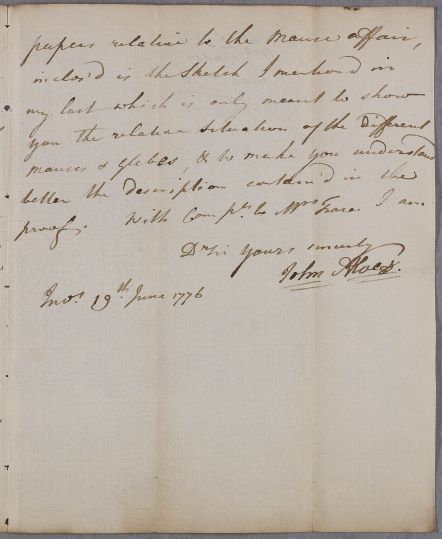 papers relative to the Manse affair,
inclos'd is the Sketch I mention'd in
my last which is only meant to show
you the relative Situation of the Different
manses & glebes, & to make you understand
better the description contain'd in the
proofs. With Compts. to Mrs I am
Dr Sir Yours sincerely
John Alves.
Invs. 19th June 1776